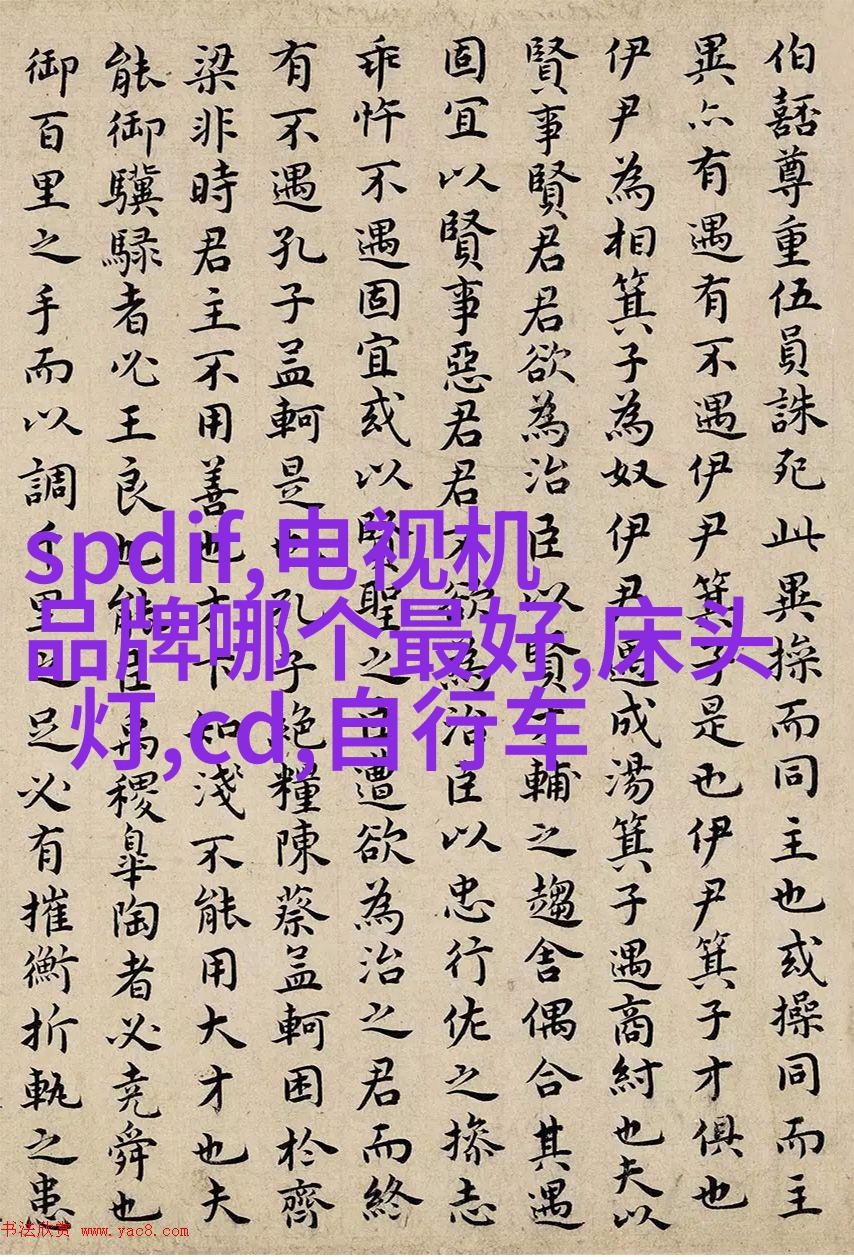 伯嚭尊重伍員誅死此異操而同主也或操同而主
異亦有遇有不遇伊尹箕子是也伊尹箕子才俱也
伊尹為相箕子為奴伊尹遇成湯箕子遇商紂也夫以
賢事賢君君欲為治臣以賢才輔之趨舍偶合其遇
固宜以賢事惡君君不欲為治臣以忠行佐之操志
乖忤不遇固宜或以賢聖之臣遭欲為治之君而終
有不遇孔子孟軻是也孔子絕糧陳蔡孟軻困於齊
梁非時君主不用善也才下知淺不能用大才也夫
能御驥騄者必王良也能臣禹稷皋陶者必堯舜也
御百里之手而以調千里之足必有摧衡折軛之患
spdif,电视机
品牌哪个最好,床头
灯,cd,自行车
书法欣赏 www.yac8.com